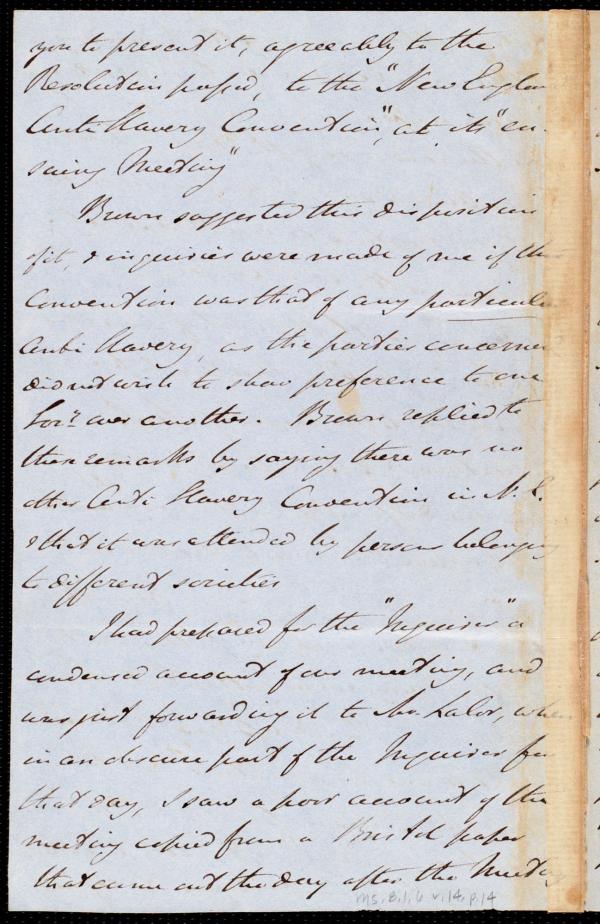 you to present it, agreeably to the
Resolution passed, to the "New England
Anti Slavery Convention", at its "en-
suing Meeting"
Brown suggested this disposition
of it, & inquiries were made of me if this
Convention was that of any particular
Anti Slavery, as the parties concerned
did not wish to show preference to one
Socy. over another. Brown replied to
these remarks by saying there was no
other Anti Slavery Convention in N. E.
& that it was attended by persons belonging
to different societies
I had prepared for the "Inquirer" a
condensed account of our meeting, and
was just forwarding it to Mr. Lalor, when
in an obscure part of the Inquirer for
that day, I saw a poor account of the
meeting copied from a Bristol paper
that came out the day after the Meeting
Ms. B.1.6 v.14, p.14